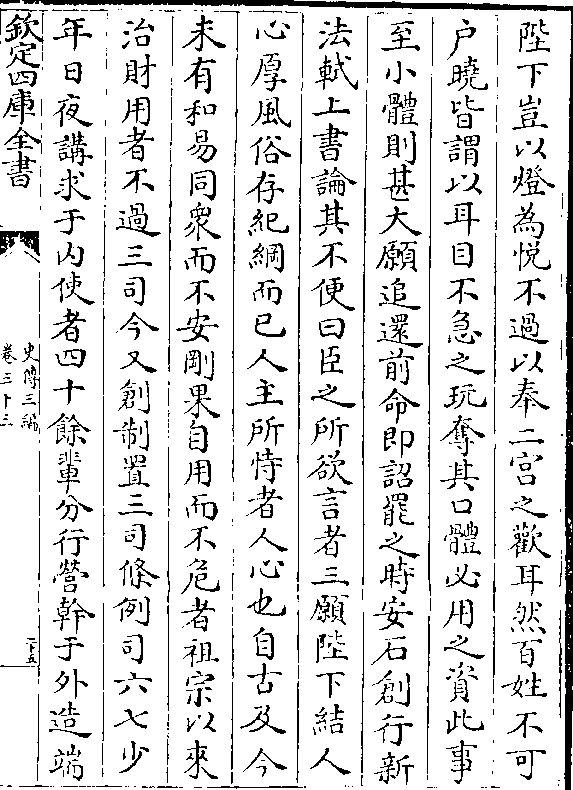 陛下豈以燈為悅不過以奉二宮之歡耳然百姓不可
户曉皆謂以耳目不急之玩奪其口體必用之資此事
至小體則甚大願追還前命即詔罷之時安石創行新
法軾上書論其不便曰臣之所欲言者三願陛下結人
心厚風俗存紀綱而已人主所恃者人心也自古及今
未有和易同衆而不安剛果自用而不危者祖宗以來
治財用者不過三司今又創制置三司條例司六七少
年日夜講求于内使者四十餘輩分行營幹于外造端
欽定四庫全書
史傳三編
卷三十三
二十五